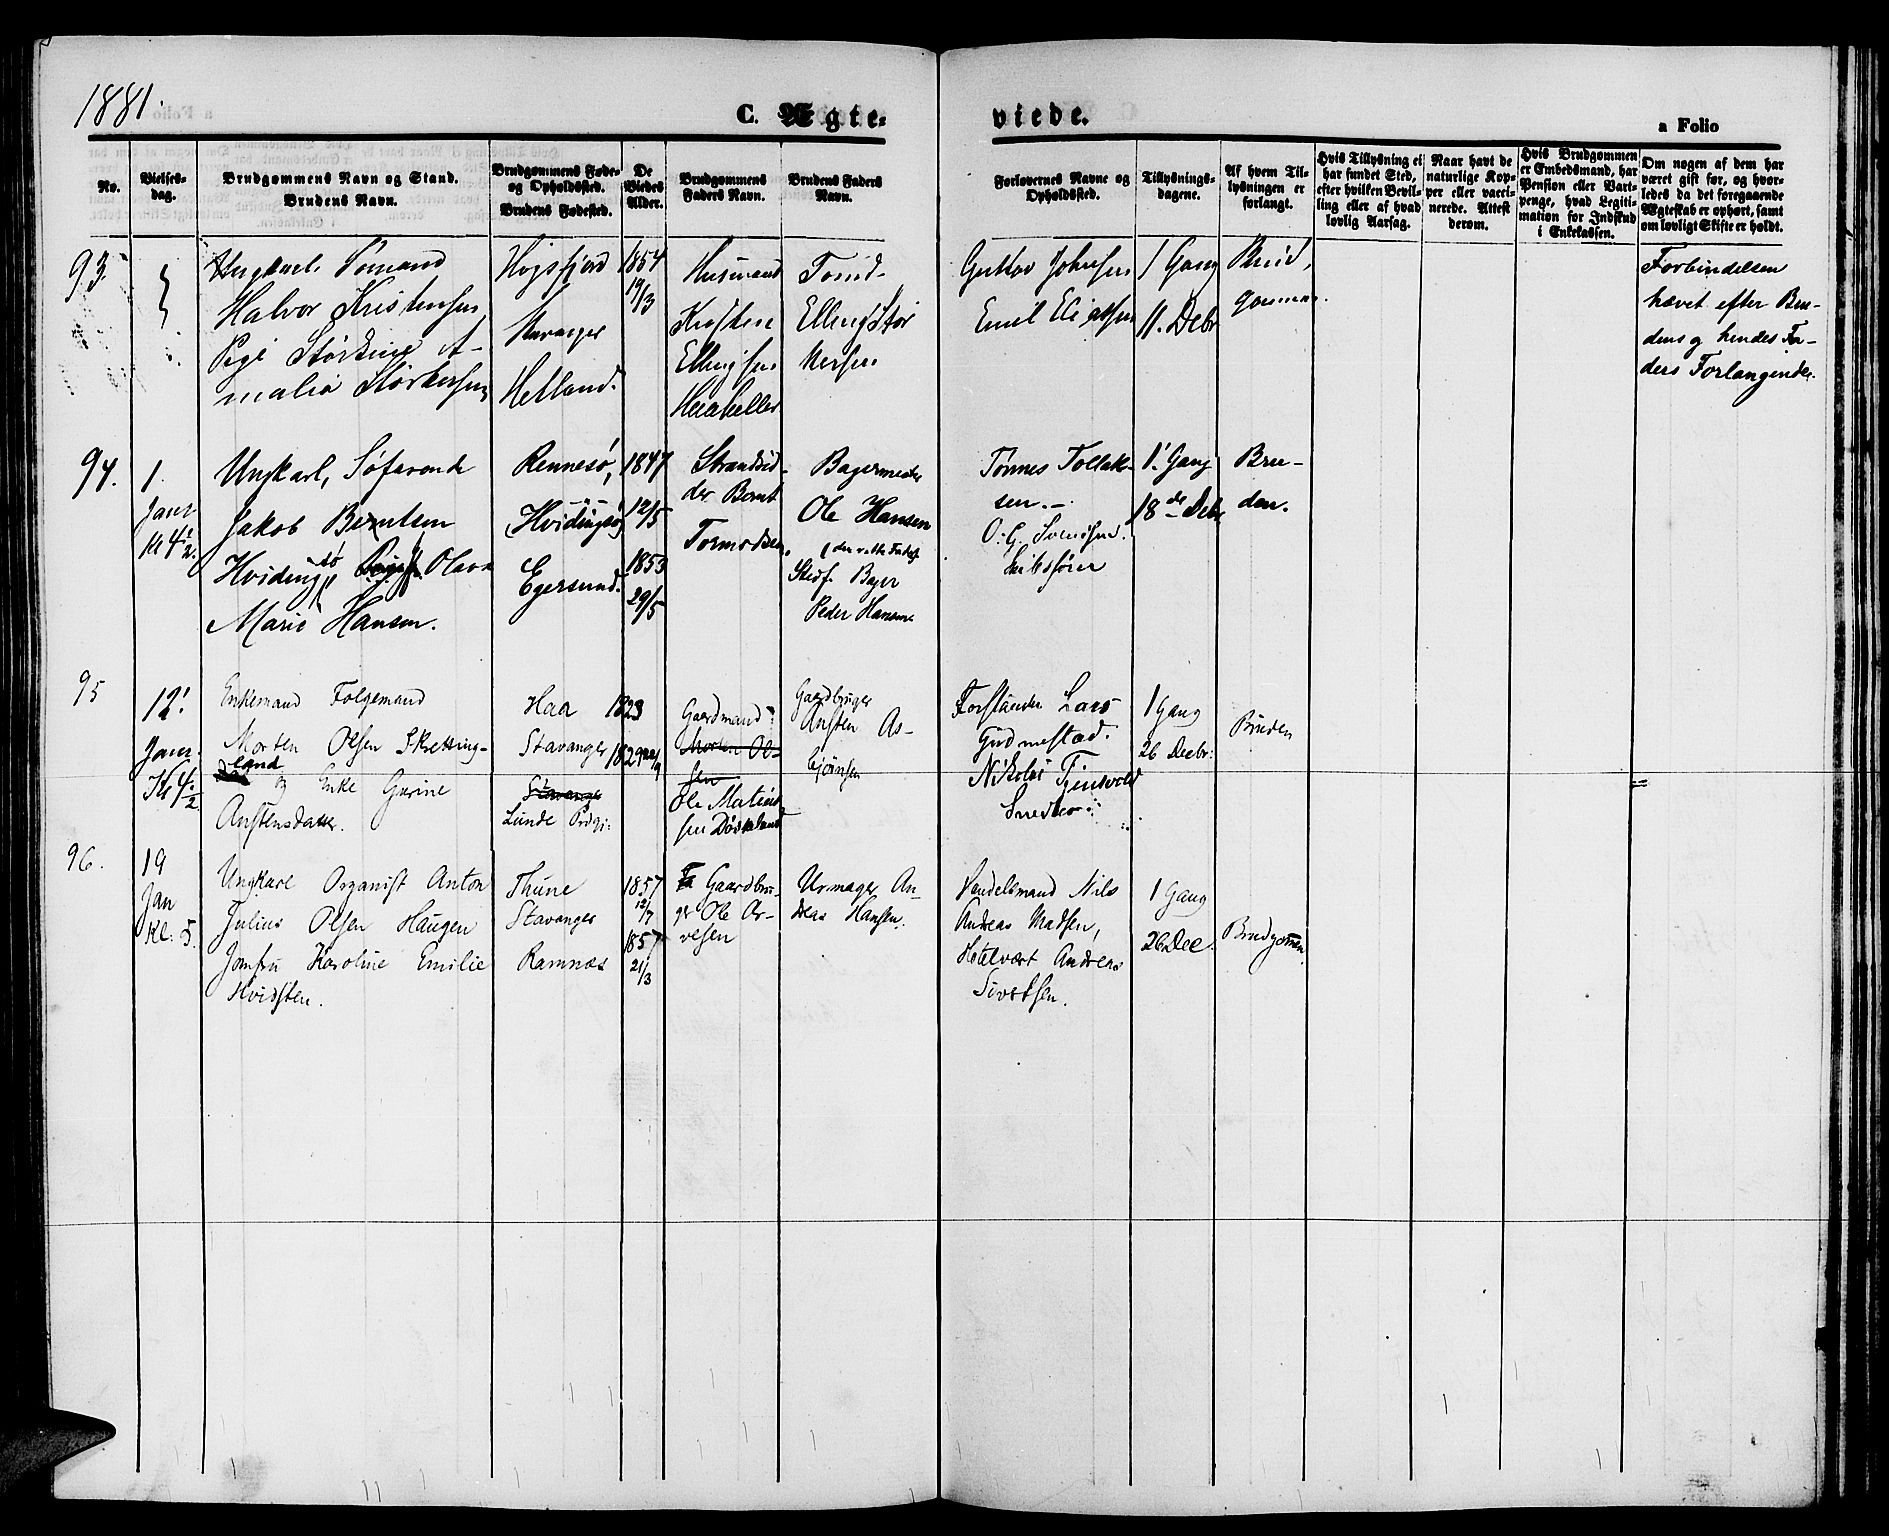 1881.
C. Ægte-
viede.
a Folio
No.
Vielses-
dag.
Brudgommens Navn og Stand.
Brudens Navn.
Brudgommens Føde-
og Opholdssted.
Brudens Fødested.
De
Viedes
Alder.
Brudgommens
Faders Navn.
Brudens Faders
Navn.
Forlovernes Navne og
Opholdssted.
Tillysnings-
dagene.
Af hvem Til-
lysningen er
forlangt.
Hvis Tillysning ei
har fundet Sted,
efter hvilken Bevil-
ling eller af hvad
lovlig Aarsag.
Naar havt de
naturlige Kop-
per eller vacci-
nerede. Attest
derom.
Hvis Brudgommen
er Embedsmand, har
Pension eller Vart-
penge, hvad Legiti-
mation for Indskud
i Enkekassen.
Om nogen af dem har
været gift før, og hvor-
ledes da det foregaaende
Ægteskab er ophørt, samt
om lovligt Skifte er holdt.
93
Ungkarl. Sømand
Halvor Kristensen,
Pige Størkine A-
malia Størkersen
Høgsfjord
Stavanger
Helland.
1854
19/3
Husmand
Kristen
Ellingsen
Ellingstør
kersen
Gustav Johnsen
Emil Eliassen
1 Gang
11. Debr
Brud,
gommen.
Forbindelsen
hævet efter Bru-
dens og hendes Fa-
ders Forlangende.
94.
1.
Janr
Kl 4½.
Ungkarl, Søfarende
Jakob Berntsen
Hvidingsø Olava
Marie Hansen.
Rennesø,
(Hvidingsø)
Egersund.
1847
12/5
1853
29/5
Strandsid-
der Bernt
Tormodsen.
Bagermester
Ole Hansen
(den rette Fader
Stedf. Bager
Peder Hansen
Tønnes Tollak-
sen.-
O. G. Svendsen.
Skibsfører
1. Gang
18de Debr
Bru-
den.
95
12.
Janr.
Kl 4½
Enkemand Følgemand
Morten Olsen Skretting-
land
og Enke Gurine
Anstensdatter.
Haa
Stavanger
Stavange
Lunde Prdgj:
1823
1829
Gaardmand
Morten Ol-
sen
Ole Matias
sen
Gaardbruger
Ansten As-
bjørnsen
Forstander Lars
Gudmestad.
Nikolai Tjensvold
Snedker
1 Gang
26 Decbr:
Bruden
=
96.
19
Jan
Kl: 5.
Ungkarl Organist Anton
Julius Olsen Haugen
Jomfru Karoline Emilie
Hvidsten.
Thune
Stavanger
Ramnæs
1857
12/7
1857
21/3
Gaardbru-
ger Ole Ar-
vesen
Urmager An-
dreas Hansen.
Handelsmand Nils
Andreas Madsen,
Hotelvært Andreas
Sivertsen.
1 Gang
26 Dec.
Brudgommen